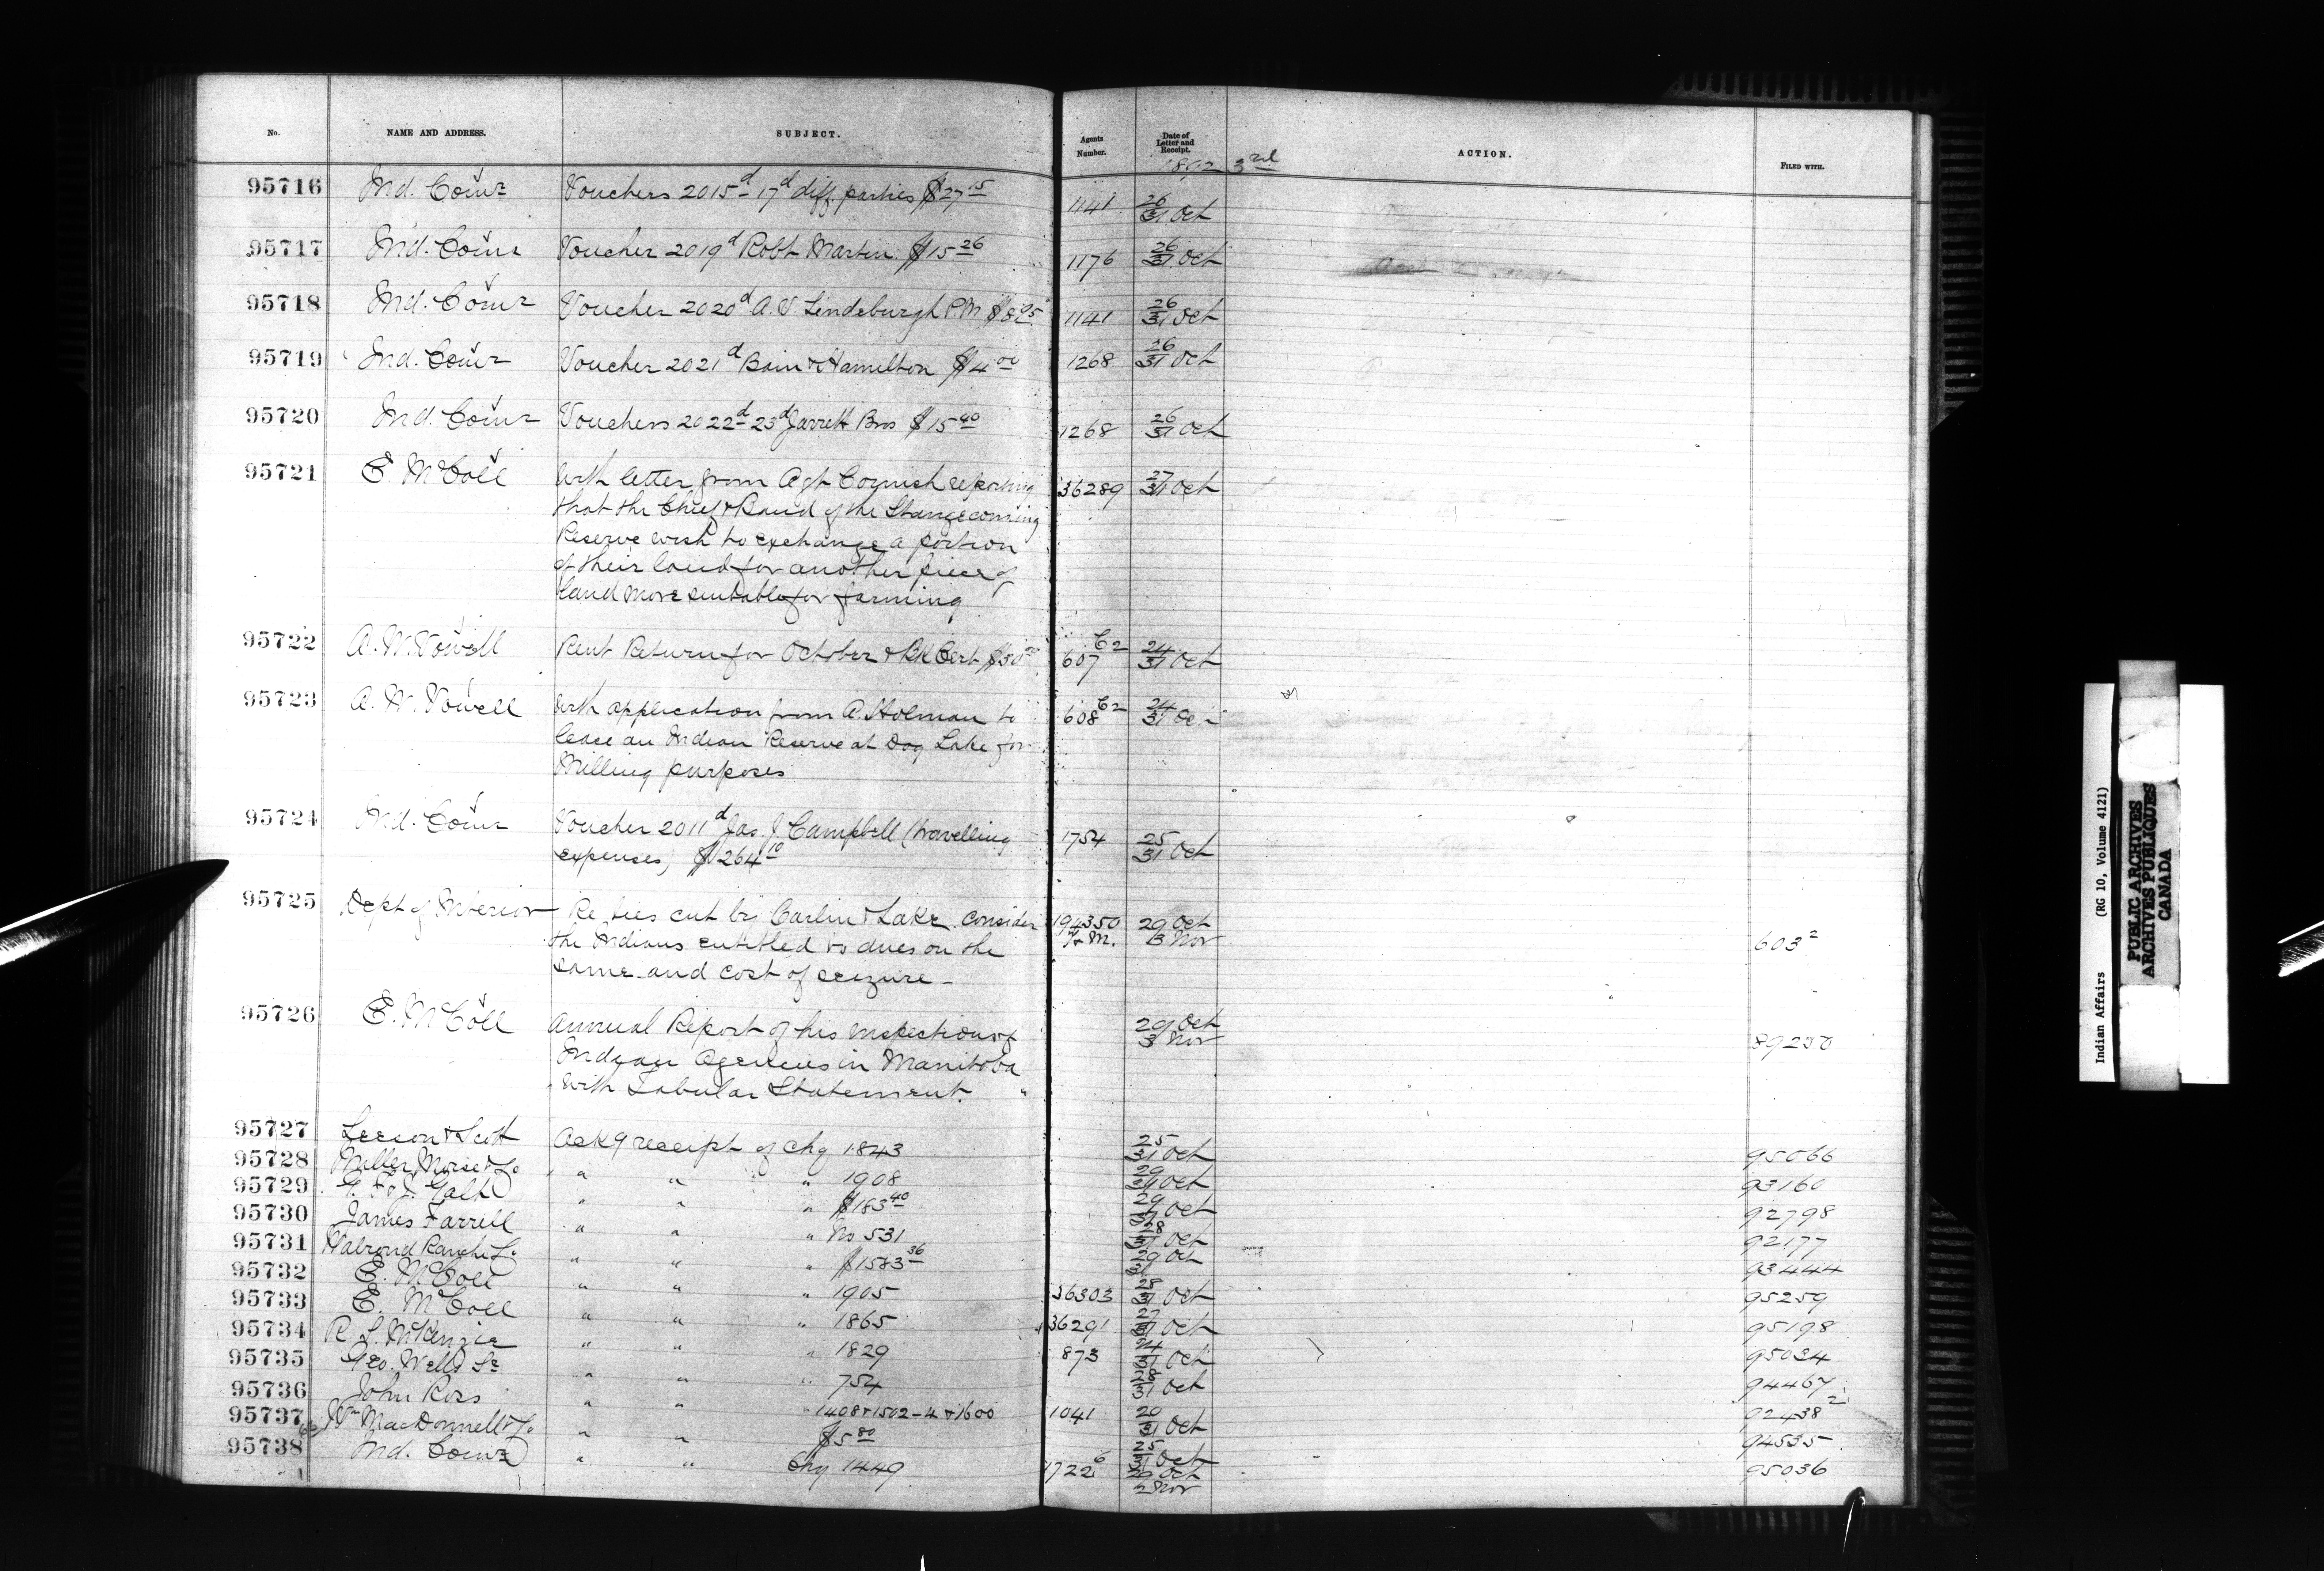 No. NAME AND ADDRESS. SUBJECT. Agents Number. Date of Letter and Receipt. ACTION. FILED WITH.
1892 3rd
95716 Ind. Comr Vouchers 2015d - 17d diff. parties $27 15 1141 26/31 Oct
95717 Ind. Comr Voucher 2019d Robt Martin $15 26 1176 26/31 Oct
95718 Ind. Comr Voucher 2020d A. V Lindeburgh P.M 1141 26/31 Oct
95719 Ind. Comr Voucher 2021d Bain & Hamelton $4 00 1268 26/31 Oct
95720 Ind. Comr Vouchers 2022d - 23d Jarrett Bros $15 40 1268 26/31 Oct
95721 E. McColl With letter from Agt Cornish reporting 36289 27/31 Oct
that the Chief & Band of the Stangecoming
Reserve wish to exchange a portion
of their land for another piece of
land more suitable for farming
95722 A. W. Vowell Rent Return for October & Bk Cert $30 607 C2 24/31 Oct
95723 A. W. Vowell With application from A. Holman to 608 C2 24/31 Oct
lease an Indian Reserve at Dog Lake for
Milling purposes
95724 Ind. Comr Voucher 2011d Jas. J. Campbell (travelling 1754 25/31 Oct
expenses) $264 10
95725 Dept of Interior Re ties cut by Carlin & Lake. consider 194350 29 Oct
the Indians entitled to dues on the T & M. 3 Nov 603 2
same and cost of seizure -
95726 E. McColl Annual Report of his inspection of 29 Oct
Indian Agencies in Manitoba 3 Nov 89250
with Tabular Statement.
95727 Leeson & Scott Ackg receipt of Chq 1843 25/31 Oct 95066
95728 Miller Morse & Co " " " 1908 29/31 Oct 93160
95729 G. F. & J. Galt " " " $183 40 29/31 Oct 92798
95730 James Farrell " " " No 531 28/31 Oct 92177
95731 Walrond Ranche Co " " " $1583 36 29/31 Oct 93444
95732 E. McColl " " " 1905 36303 28/31 Oct 95259
95733 E. McColl " " " 1865 36291 27/31 Oct 95198
95734 R. S. McKenzie " " " 1829 873 24/31 Oct 95034
95735 Geo. Wells Sr " " " 754 28/31 Oct 94467
95736 John Ross " " " 1408 & 1502 - 4 & 1600 1041 20/31 Oct 92438 2
95737 Wm MacDonnell & Co " " $5 80 25/31 Oct 94535
95738 Ind. Comr " " Chq 1449 1722 6 26 Oct 95036
2 Nov
Indian Affairs (RG 10, Volume 4121)
PUBLIC ARCHIVES
ARCHIVES PUBLIQUES
CANADA